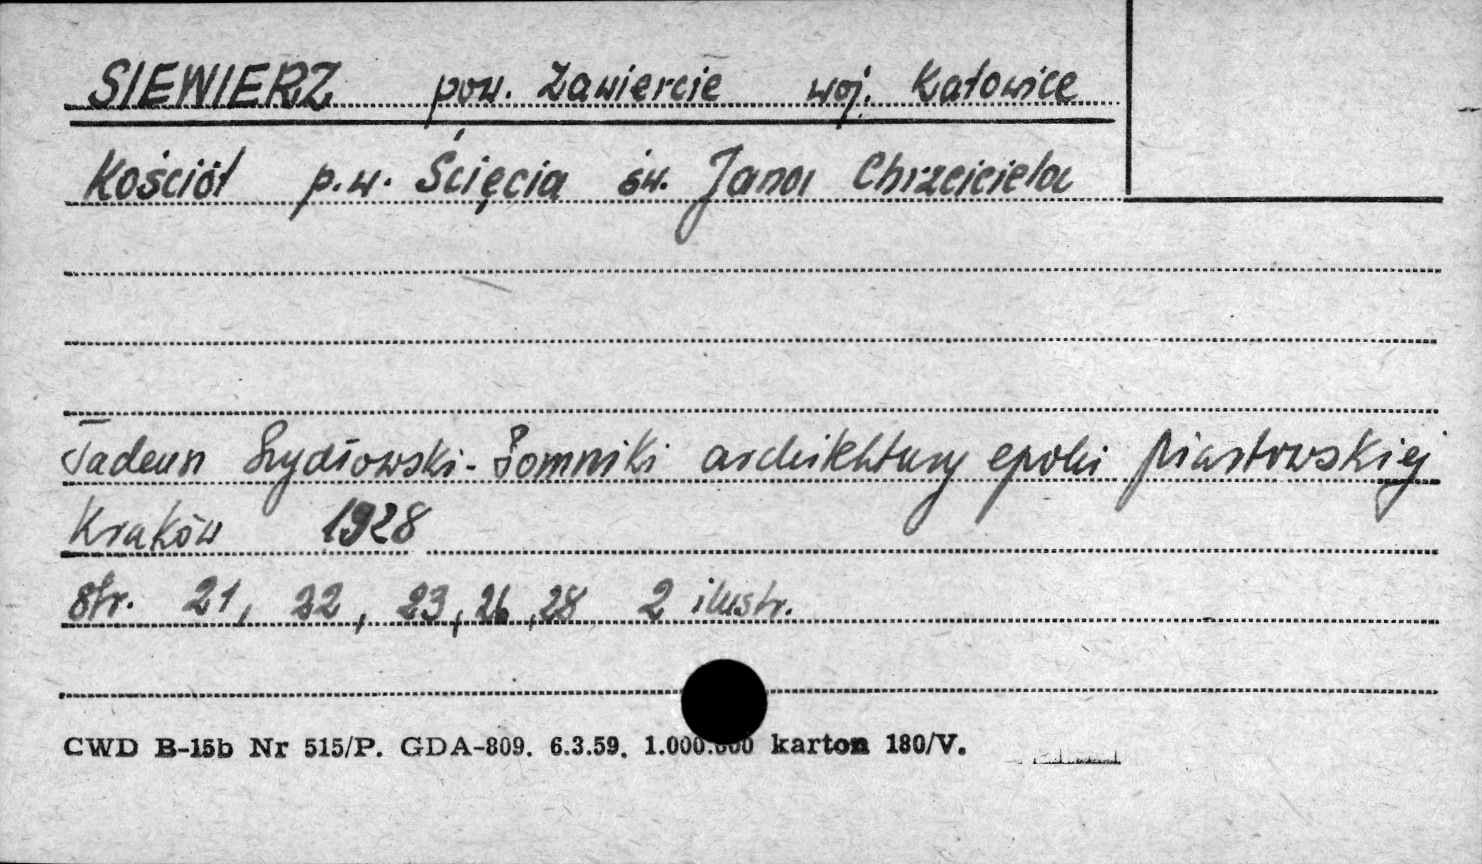 SIEWIERZ pow. Zawiercie woj. Katowice
Kościół p.w. Ścięcia św. Jana Chrzciciela
Tadeusz Szydłowski - Pomniki architektury epoki piastowskiej
Kraków 1928
Str. 21, 22, 23, 26, 28 2 ilustr.
CWD B-15b Nr 515/P. GDA-809. 6.3.59. 1.000.000 karton 180/V.